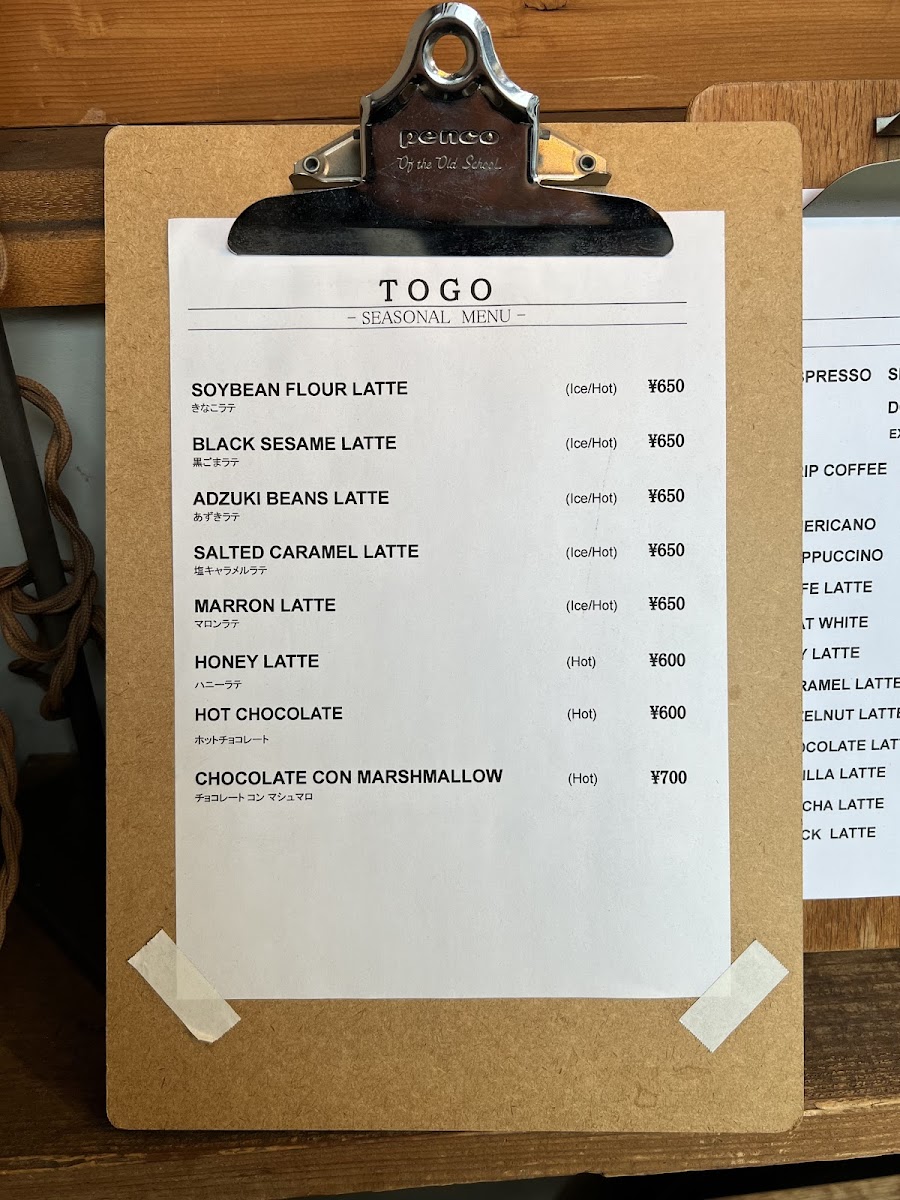 penco
Of the Old School
TOGO
- SEASONAL MENU -
SOYBEAN FLOUR LATTE (Ice/Hot) ¥650
きなこラテ
BLACK SESAME LATTE (Ice/Hot) ¥650
黒ごまラテ
ADZUKI BEANS LATTE (Ice/Hot) ¥650
あずきラテ
SALTED CARAMEL LATTE (Ice/Hot) ¥650
塩キャラメルラテ
MARRON LATTE (Ice/Hot) ¥650
マロンラテ
HONEY LATTE (Hot) ¥600
ハニーラテ
HOT CHOCOLATE (Hot) ¥600
ホットチョコレート
CHOCOLATE CON MARSHMALLOW (Hot) ¥700
チョコレート コン マシュマロ
COFFEE
LATTE
WHITE
LATTE
LATTE
LATTE
LATTE
LATTE